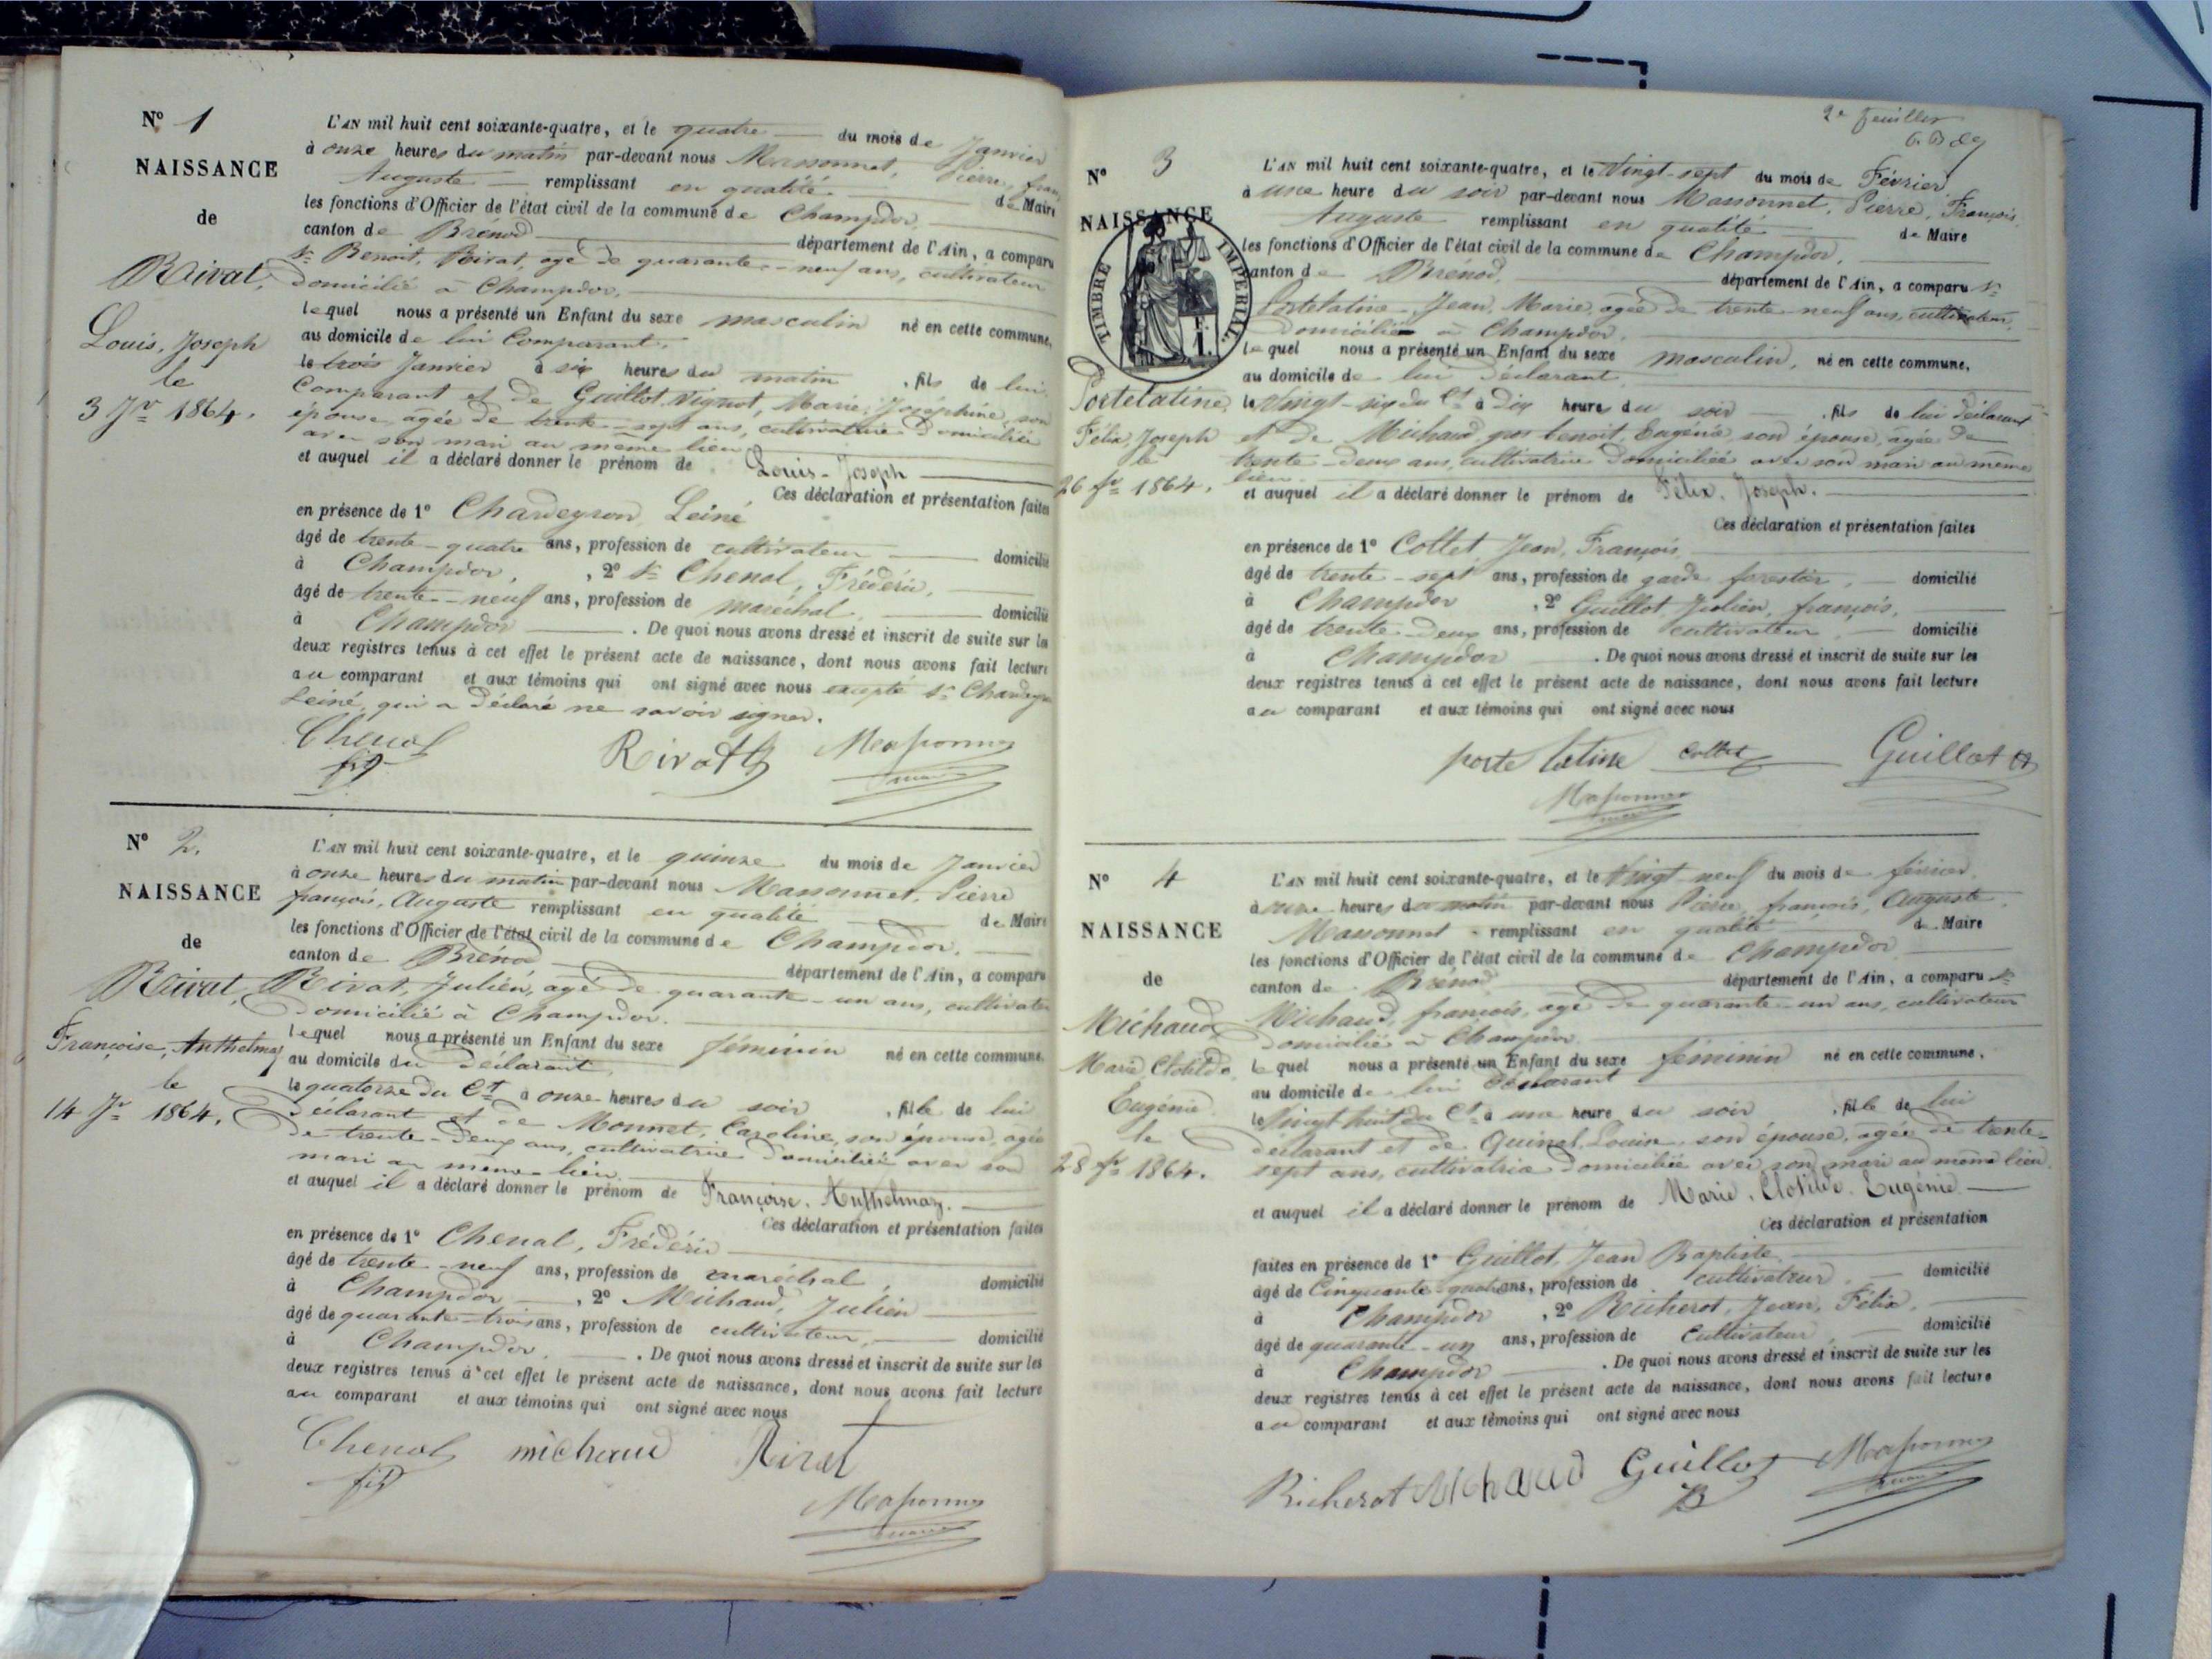 N° 1
NAISSANCE
de
Rivat,
Louis, Joseph
le
3 Jer 1864.
L'AN mil huit cent soixante-quatre, et le quatre du mois de Janvier
à onze heures du matin par-devant nous Massonnet, Pierre, fran
Auguste remplissant en qualité de Maire
les fonctions d'Officier de l'état civil de la commune de Champdor,
canton de Brénod département de l'Ain, a comparu
Sr Benoit, Rivat, agé de quarante-neuf ans, cultivateur
domicilié à Champdor,
lequel nous a présenté un Enfant du sexe masculin né en cette commune,
au domicile de lui Comparant,
le trois Janvier à six heures du matin, fils de lui
Comparant et de Guillot Vignot, Marie, Joséphine, son
épouse agée de trente-sept ans, cultivatrice domiciliée
avec son mari au même lieu
et auquel il a déclaré donner le prénom de Louis-Joseph
Ces déclaration et présentation faites
en présence de 1° Chardeyron Leiné
âgé de trente-quatre ans, profession de cultivateur domicilié
à Champdor, , 2° Sr Chenal, Frédéric,
âgé de trente-neuf ans, profession de maréchal, domicilié
à Champdor . De quoi nous avons dressé et inscrit de suite sur les
deux registres tenus à cet effet le présent acte de naissance, dont nous avons fait lecture
au comparant et aux témoins qui ont signé avec nous excepté Sr Chardeyron
Leiné, qui a déclaré ne savoir signer.
Chenal Rivat Massonnet
fis maire
N° 2.
NAISSANCE
de
Rivat,
Françoise, Anthelmaz
le
14 Jer 1864.
L'AN mil huit cent soixante-quatre, et le quinze du mois de Janvier
à onze heures du matin par-devant nous Massonnet, Pierre
françois, Auguste remplissant en qualité de Maire
les fonctions d'Officier de l'état civil de la commune de Champdor,
canton de Brénod département de l'Ain, a comparu
Rivat, Julien, agé de quarante-un ans, cultivateur
domicilié à Champdor.
lequel nous a présenté un Enfant du sexe féminin né en cette commune,
au domicile du déclarant
le quatorze du Ct à onze heures du soir, fille de lui
déclarant et de Monnet, Caroline, son épouse, agée
de trente-deux ans, cultivatrice domiciliée avec son
mari au même lieu
et auquel il a déclaré donner le prénom de Françoise. Anthelmaz.
Ces déclaration et présentation faites
en présence de 1° Chenal, Frédéric
âgé de trente-neuf ans, profession de maréchal, domicilié
à Champdor , 2° Michaud, Julien
âgé de quarante-trois ans, profession de cultivateur, domicilié
à Champdor. . De quoi nous avons dressé et inscrit de suite sur les
deux registres tenus à cet effet le présent acte de naissance, dont nous avons fait lecture
au comparant et aux témoins qui ont signé avec nous
Chenal michaud Rivat
fis
Massonnet
maire
2e feuillet
N° 3
NAISSANCE
TIMBRE IMPÉRIAL
Portelatine,
Félix, Joseph
le
26 fer 1864.
L'AN mil huit cent soixante-quatre, et le Vingt-sept du mois de Février
à une heure du soir par-devant nous Massonnet, Pierre, François,
Auguste remplissant en qualité de Maire
les fonctions d'Officier de l'état civil de la commune de Champdor,
canton de Brénod, département de l'Ain, a comparu Sr
Portelatine, Jean, Marie, agée de trente-neuf ans, cultivateur,
domicilié à Champdor.
lequel nous a présenté un Enfant du sexe masculin, né en cette commune,
au domicile de lui déclarant
le Vingt-six du Ct à Dix heures du soir , fils de lui déclarant
et de Michaud, gros benoit, Eugénie, son épouse, agée de
trente-deux ans, cultivatrice domiciliée avec son mari au même
lieu.
et auquel il a déclaré donner le prénom de Félix. Joseph.
Ces déclaration et présentation faites
en présence de 1° Collet Jean, François
âgé de trente-sept ans, profession de garde forestier, domicilié
à Champdor , 2° Guillot Julien, françois,
âgé de trente-deux ans, profession de cultivateur domicilié
à Champdor . De quoi nous avons dressé et inscrit de suite sur les
deux registres tenus à cet effet le présent acte de naissance, dont nous avons fait lecture
au comparant et aux témoins qui ont signé avec nous
porte latine Collet Guillot
Massonnet
maire
N° 4
NAISSANCE
de
Michaud
Marie Clotilde
Eugénie
le
28 fer 1864.
L'AN mil huit cent soixante-quatre, et le Vingt-neuf du mois de février
à onze heures du matin par-devant nous Pierre, françois, Auguste
Massonnet remplissant en qualité de Maire
les fonctions d'Officier de l'état civil de la commune de Champdor
canton de Brénod département de l'Ain, a comparu Sr
Michaud, françois, agé de quarante-un ans, cultivateur
domicilié à Champdor
lequel nous a présenté un Enfant du sexe féminin né en cette commune,
au domicile de lui déclarant
le Vingt huit du Ct à une heure du soir , fille de lui
déclarant et de Quinet Louise, son épouse, agée de trente-
sept ans, cultivatrice domiciliée avec son mari au même lieu.
et auquel il a déclaré donner le prénom de Marie, Clotilde. Eugénie
Ces déclaration et présentation
faites en présence de 1° Guillot, Jean Baptiste
âgé de Cinquante-quatre ans, profession de cultivateur, domicilié
à Champdor , 2° Richerot, Jean, Félix,
âgé de quarante-un ans, profession de Cultivateur domicilié
à Champdor . De quoi nous avons dressé et inscrit de suite sur les
deux registres tenus à cet effet le présent acte de naissance, dont nous avons fait lecture
au comparant et aux témoins qui ont signé avec nous
Richerot Michaud Guillot Massonnet
JB maire